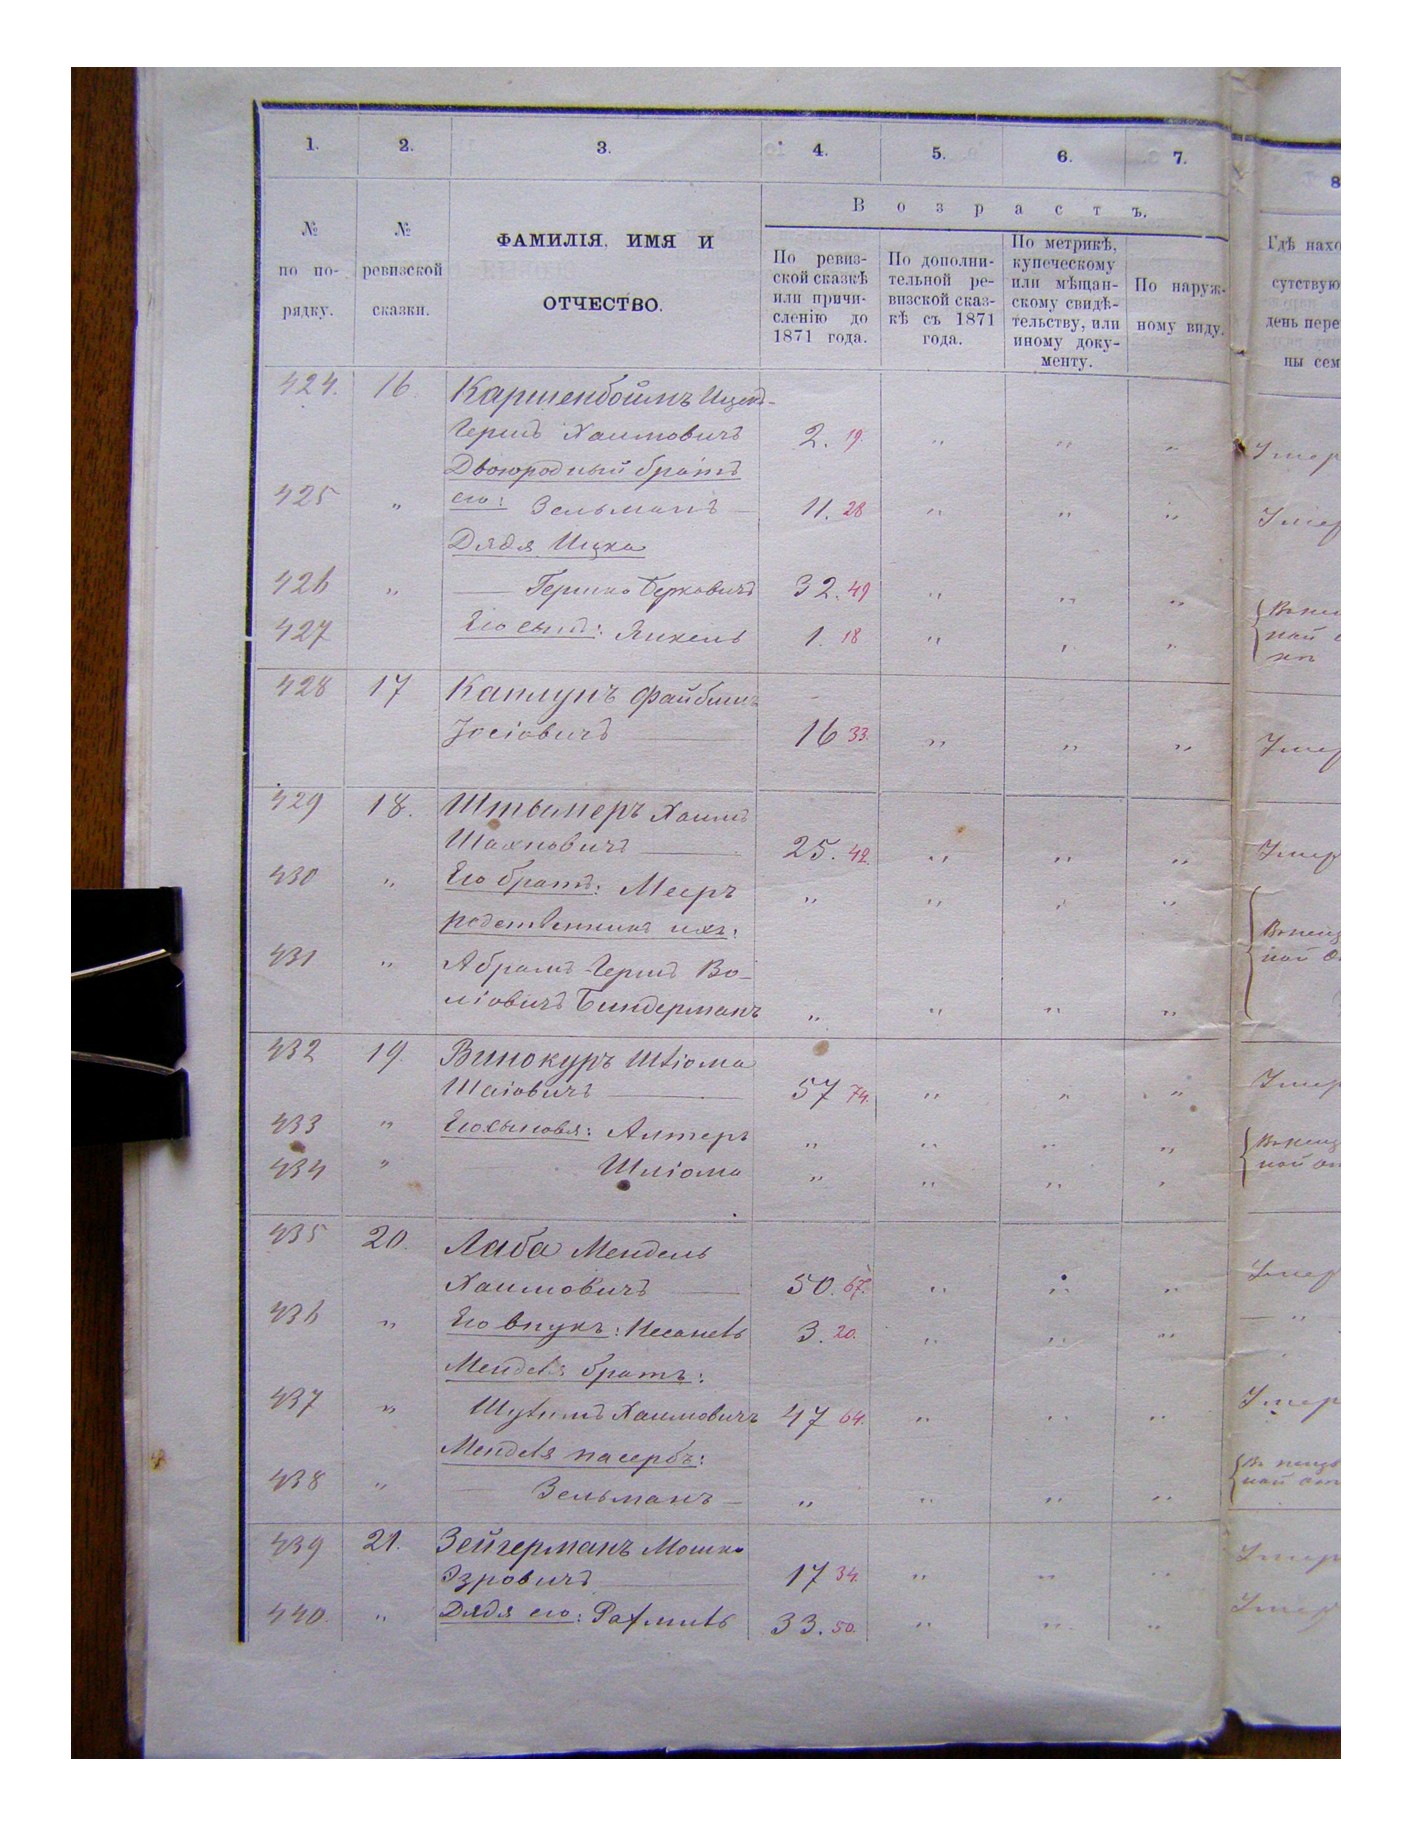 1. 2. 3. 4. 5. 6. 7. 8
№ по по- рядку.
№ ревизской сказки.
ФАМИЛІЯ, ИМЯ И
ОТЧЕСТВО.
Возрастъ.
По ревиз-
ской сказкѣ
или причи-
сленію до
1871 года.
По дополни-
тельной ре-
визской сказ-
кѣ съ 1871
года.
По метрикѣ,
купеческому
или мѣщан-
скому свидѣ-
тельству, или
иному доку-
менту.
По наруж-
ному виду.
Гдѣ нахо
сутствую
день пере
ны сем
424. 16 Каршенбоймъ Ицко-
Гершъ Хаимовичъ 2. 19. " " " Умер
Двоюродный братъ
425 " его: Зельманъ 11. 28 " " " Умер
Дядя Ицка
426 " Гершко Берковичъ 32. 49 " " "
427 Его сынъ: Янкель 1. 18 " " "
428 17 Каплунъ Файбишъ
Іосіовичъ 16 33. " " " Умер
429 18. Штылперъ Хаимъ
Шахновичъ 25. 42. " " " Умер
430 " Его братъ: Мееръ " " " "
родственникъ ихъ:
431 " Абрамъ-Гершъ Во-
ліовичъ Биндерманъ " " " "
432 19 Винокуръ Шліома
Шаіовичъ 57 74. " " " Умер
433 " Его сыновья: Алтеръ " " " "
434 " Шліома " " " "
435 20. Лаба Мендель
Хаимовичъ 50. 67. " " " Умер
436 " Его внукъ: 3. 20. " " " "
Менделя братъ:
437 " Хаимовичъ 47 64. " " " Умер
Менделя пасербъ:
438 " Зельманъ " " " "
439 21. Зейгерманъ Мошко
Эзровичъ 17 34. " " " Умер
440. " Дядя его: Рахмиль 33. 50. " " " Умер